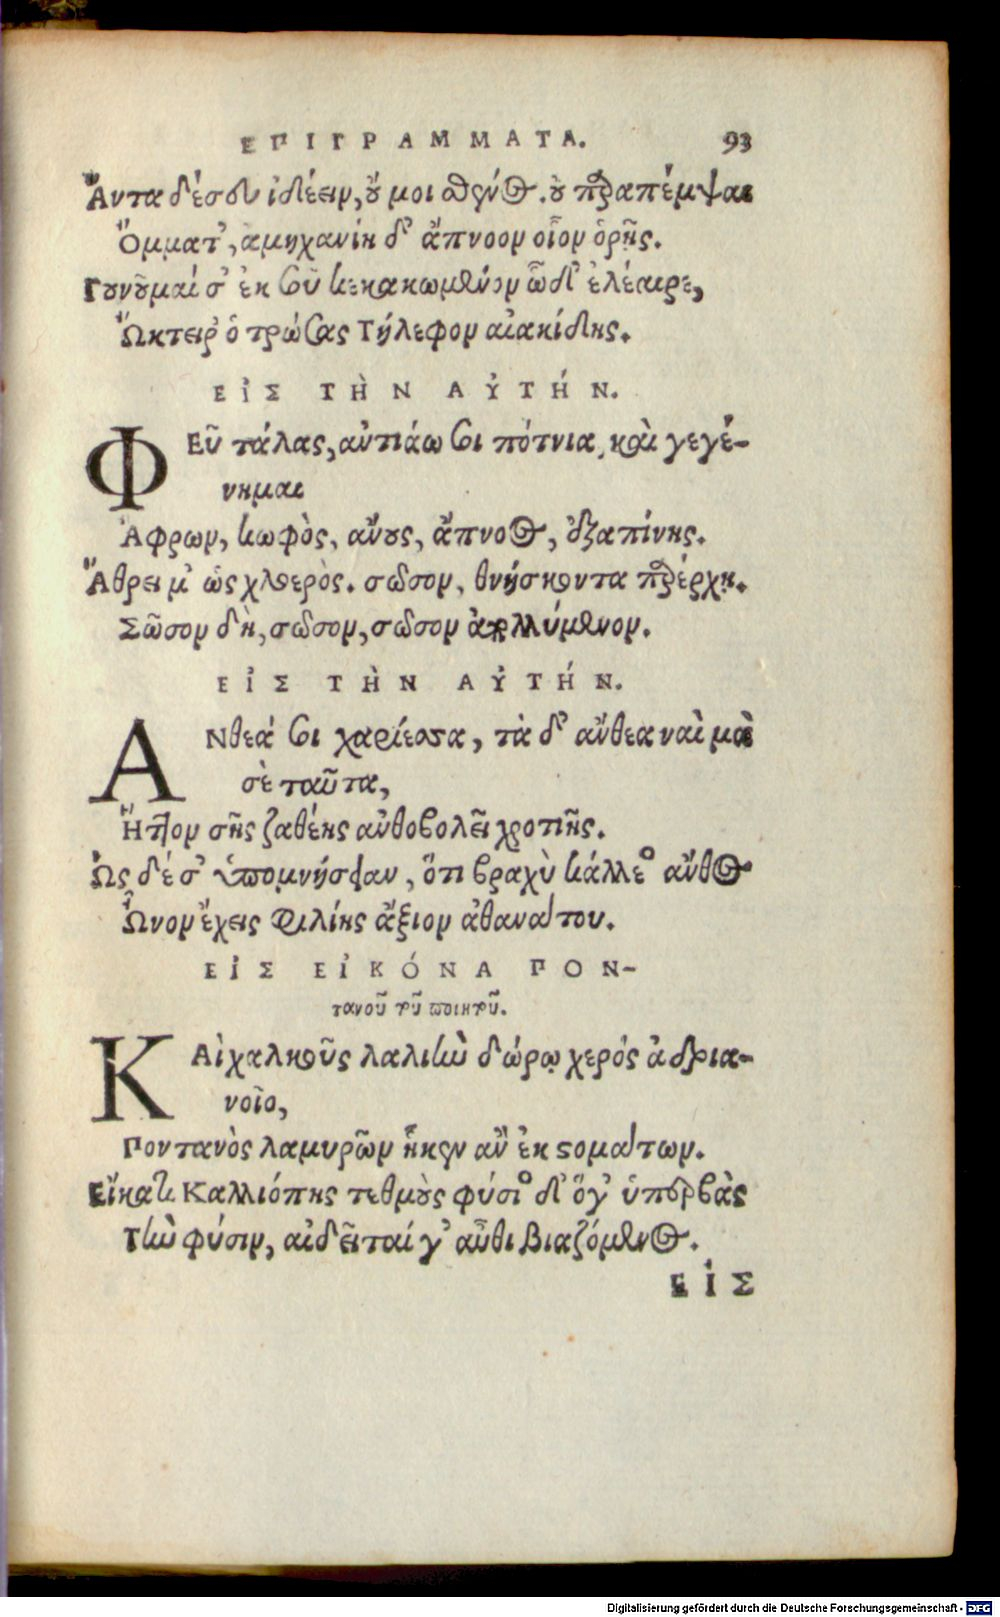 ΕΠΙΓΡΑΜΜΑΤΑ. 93
Ἄντα δέ σου ἰδέειν, οὔ μοι σθένος. οὐ παραπέμψαι
Ὄμματ', ἀμηχανίη δ' ἄπνοον οἷον ὁρῇς.
Γουνοῦμαί σ' ἐκ σοῦ κεκακωμένον ὧδ' ἐλέαιρε,
Ὤκτειρ' ὁ τρώσας Τήλεφον αἰακίδης.
ΕἸΣ ΤῊΝ ΑΥ̓ΤΉΝ.
ΦΕῦ τάλας, αὐτιάω σοι πότνια, καὶ γεγέ-
νημαι
Ἄφρων, κωφὸς, ἄνους, ἄπνοος, ἐξαπίνης.
Ἄθρει μ' ὡς χλοερὸς. σῶσον, θνήσκοντα παρέρχῃ.
Σῶσον δὴ, σῶσον, σῶσον ἀπολλύμενον.
ΕἸΣ ΤῊΝ ΑΥ̓ΤΉΝ.
ΑΝθεά σοι χαρίεσσα, τὰ δ' ἄνθεα ναὶ μὰ
σὲ ταῦτα,
Ἧττον σῆς ζαθέης ἀνθοβολεῖ χροτιῆς.
Ὡς δέ σ' ὑπομνήσειαν, ὅτι βραχὺ κάλλεος ἄνθος
Ὦνον ἔχεις φιλίης ἄξιον ἀθανάτου.
ΕἸΣ ΕἸΚΌΝΑ ΠΟΝ-
τανοῦ τοῦ ποιητοῦ.
ΚΑὶ χαλκοῦς λαλιὴν δώρῳ χερός ἀδριανοῖο,
Ποντανὸς λαμυρῶν ἧκεν ἂν ἐκ στομάτων.
Εἴκαθε Καλλιόπης τεθμοὺς φύσιος δ' ὅγ' ὑπερβὰς
Τὴν φύσιν, αἰδεῖταί γ' αὖθι βιαζόμενος.
ΕἸΣ
Digitalisierung gefördert durch die Deutsche Forschungsgemeinschaft - DFG